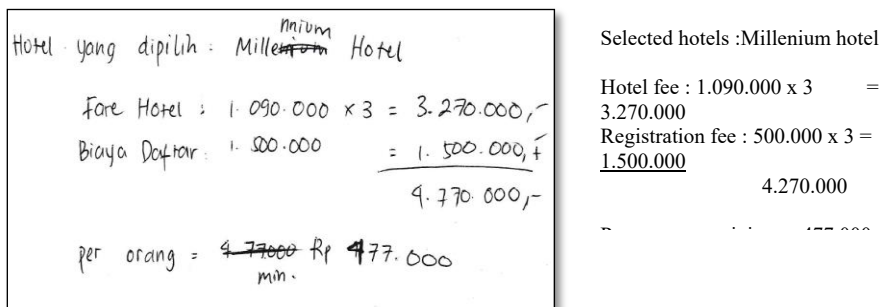 Hotel yang dipilih : Millennium Hotel
Fare Hotel : 1.090.000 x 3 = 3.270.000,-
Biaya Daftar : 1.500.000 = 1.500.000,+
4.770.000,-
per orang = 4.77000 Rp 477.000
min.
Selected hotels :Millenium hotel
Hotel fee : 1.090.000 x 3 =
3.270.000
Registration fee : 500.000 x 3 =
1.500.000
4.270.000